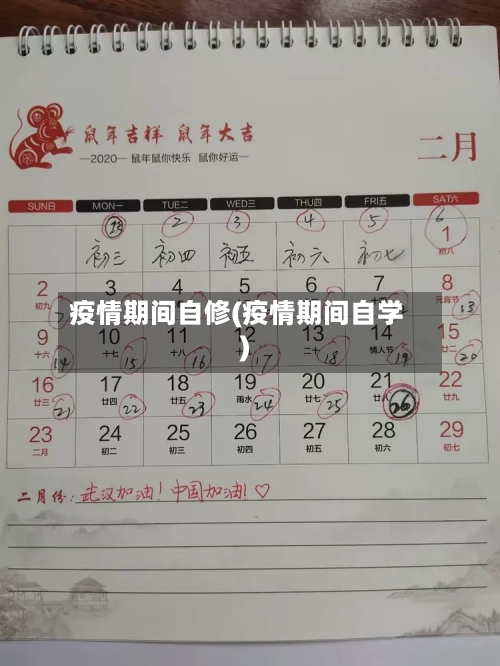 鼠年吉祥 鼠年大吉
—2020— 鼠年鼠你快乐 鼠你好运—
二月
SUN日 MON一 TUE二 WED三 THU四 FRI五 SAT六
2 3 4 5 6
初三 初四 初五 初六 初七 1 初八
2 3 4 5 6 7 8
初九 元宵节 13
疫情期间自修(疫情期间自学
)
9 10 11 12 13 14 15
十六 十七 十八 二十 情人节 廿二
14 15 16 17 18 19 20
16 17 18 19 20 21 22
廿三 廿四 廿五 雨水 廿七 廿八 廿九
21 22 23 24 25 26
23 24 25 26 27 28 29
二月 初二 初三 初四 初五 初六 初七
二月份: 武汉加油! 中国加油! ♡